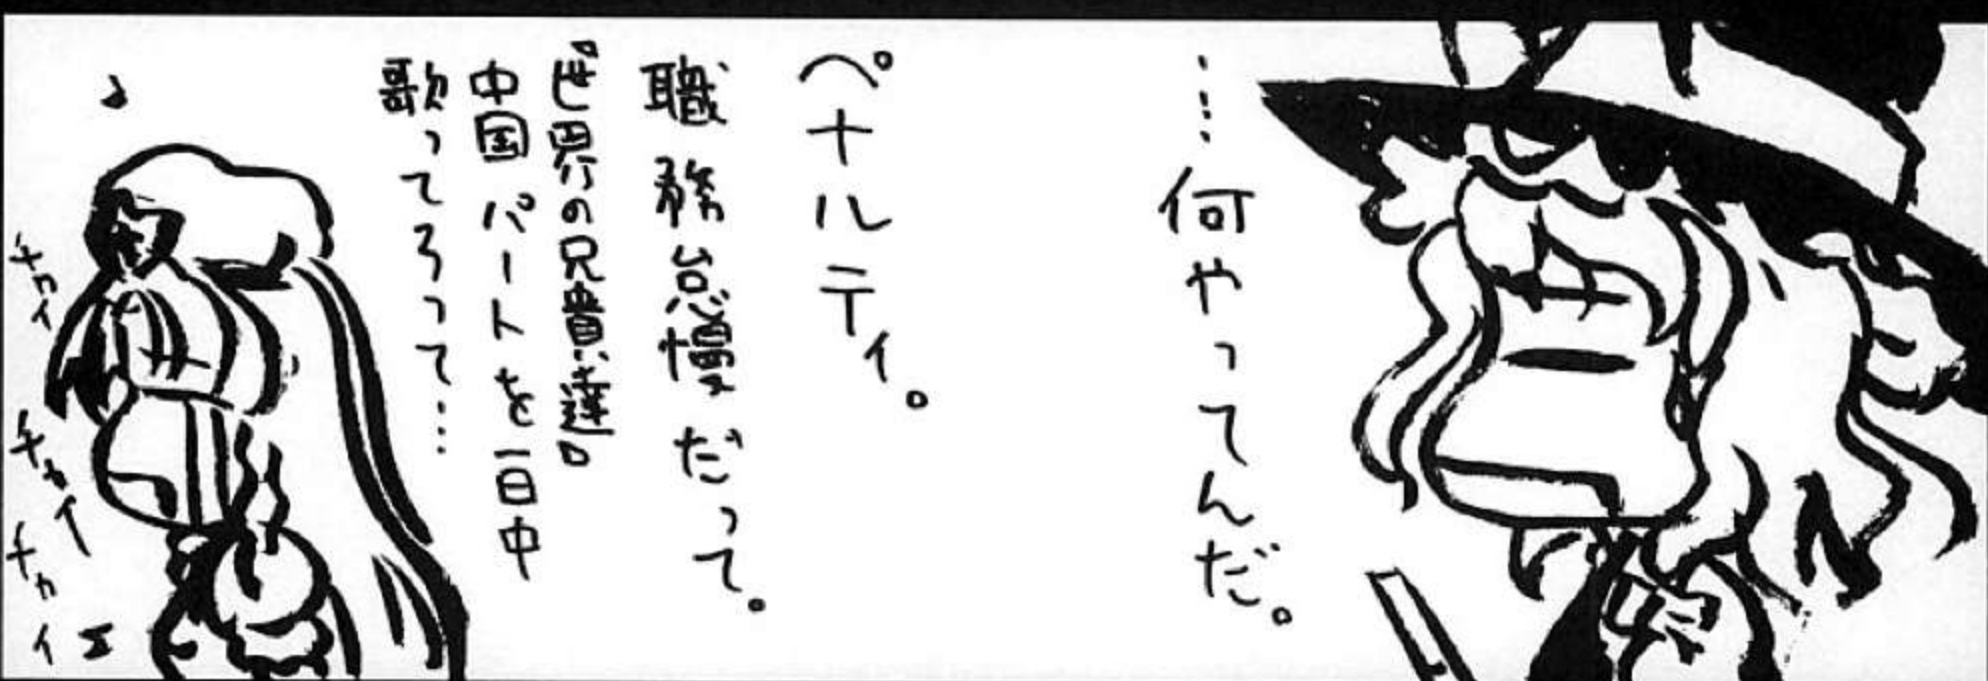 …何やってんだ。
ペナルティ。
職務怠慢だって。
『世界の兄貴達』
中国パートを一日中
歌ってろって…
♪
チャイ
チャイ
チャイ